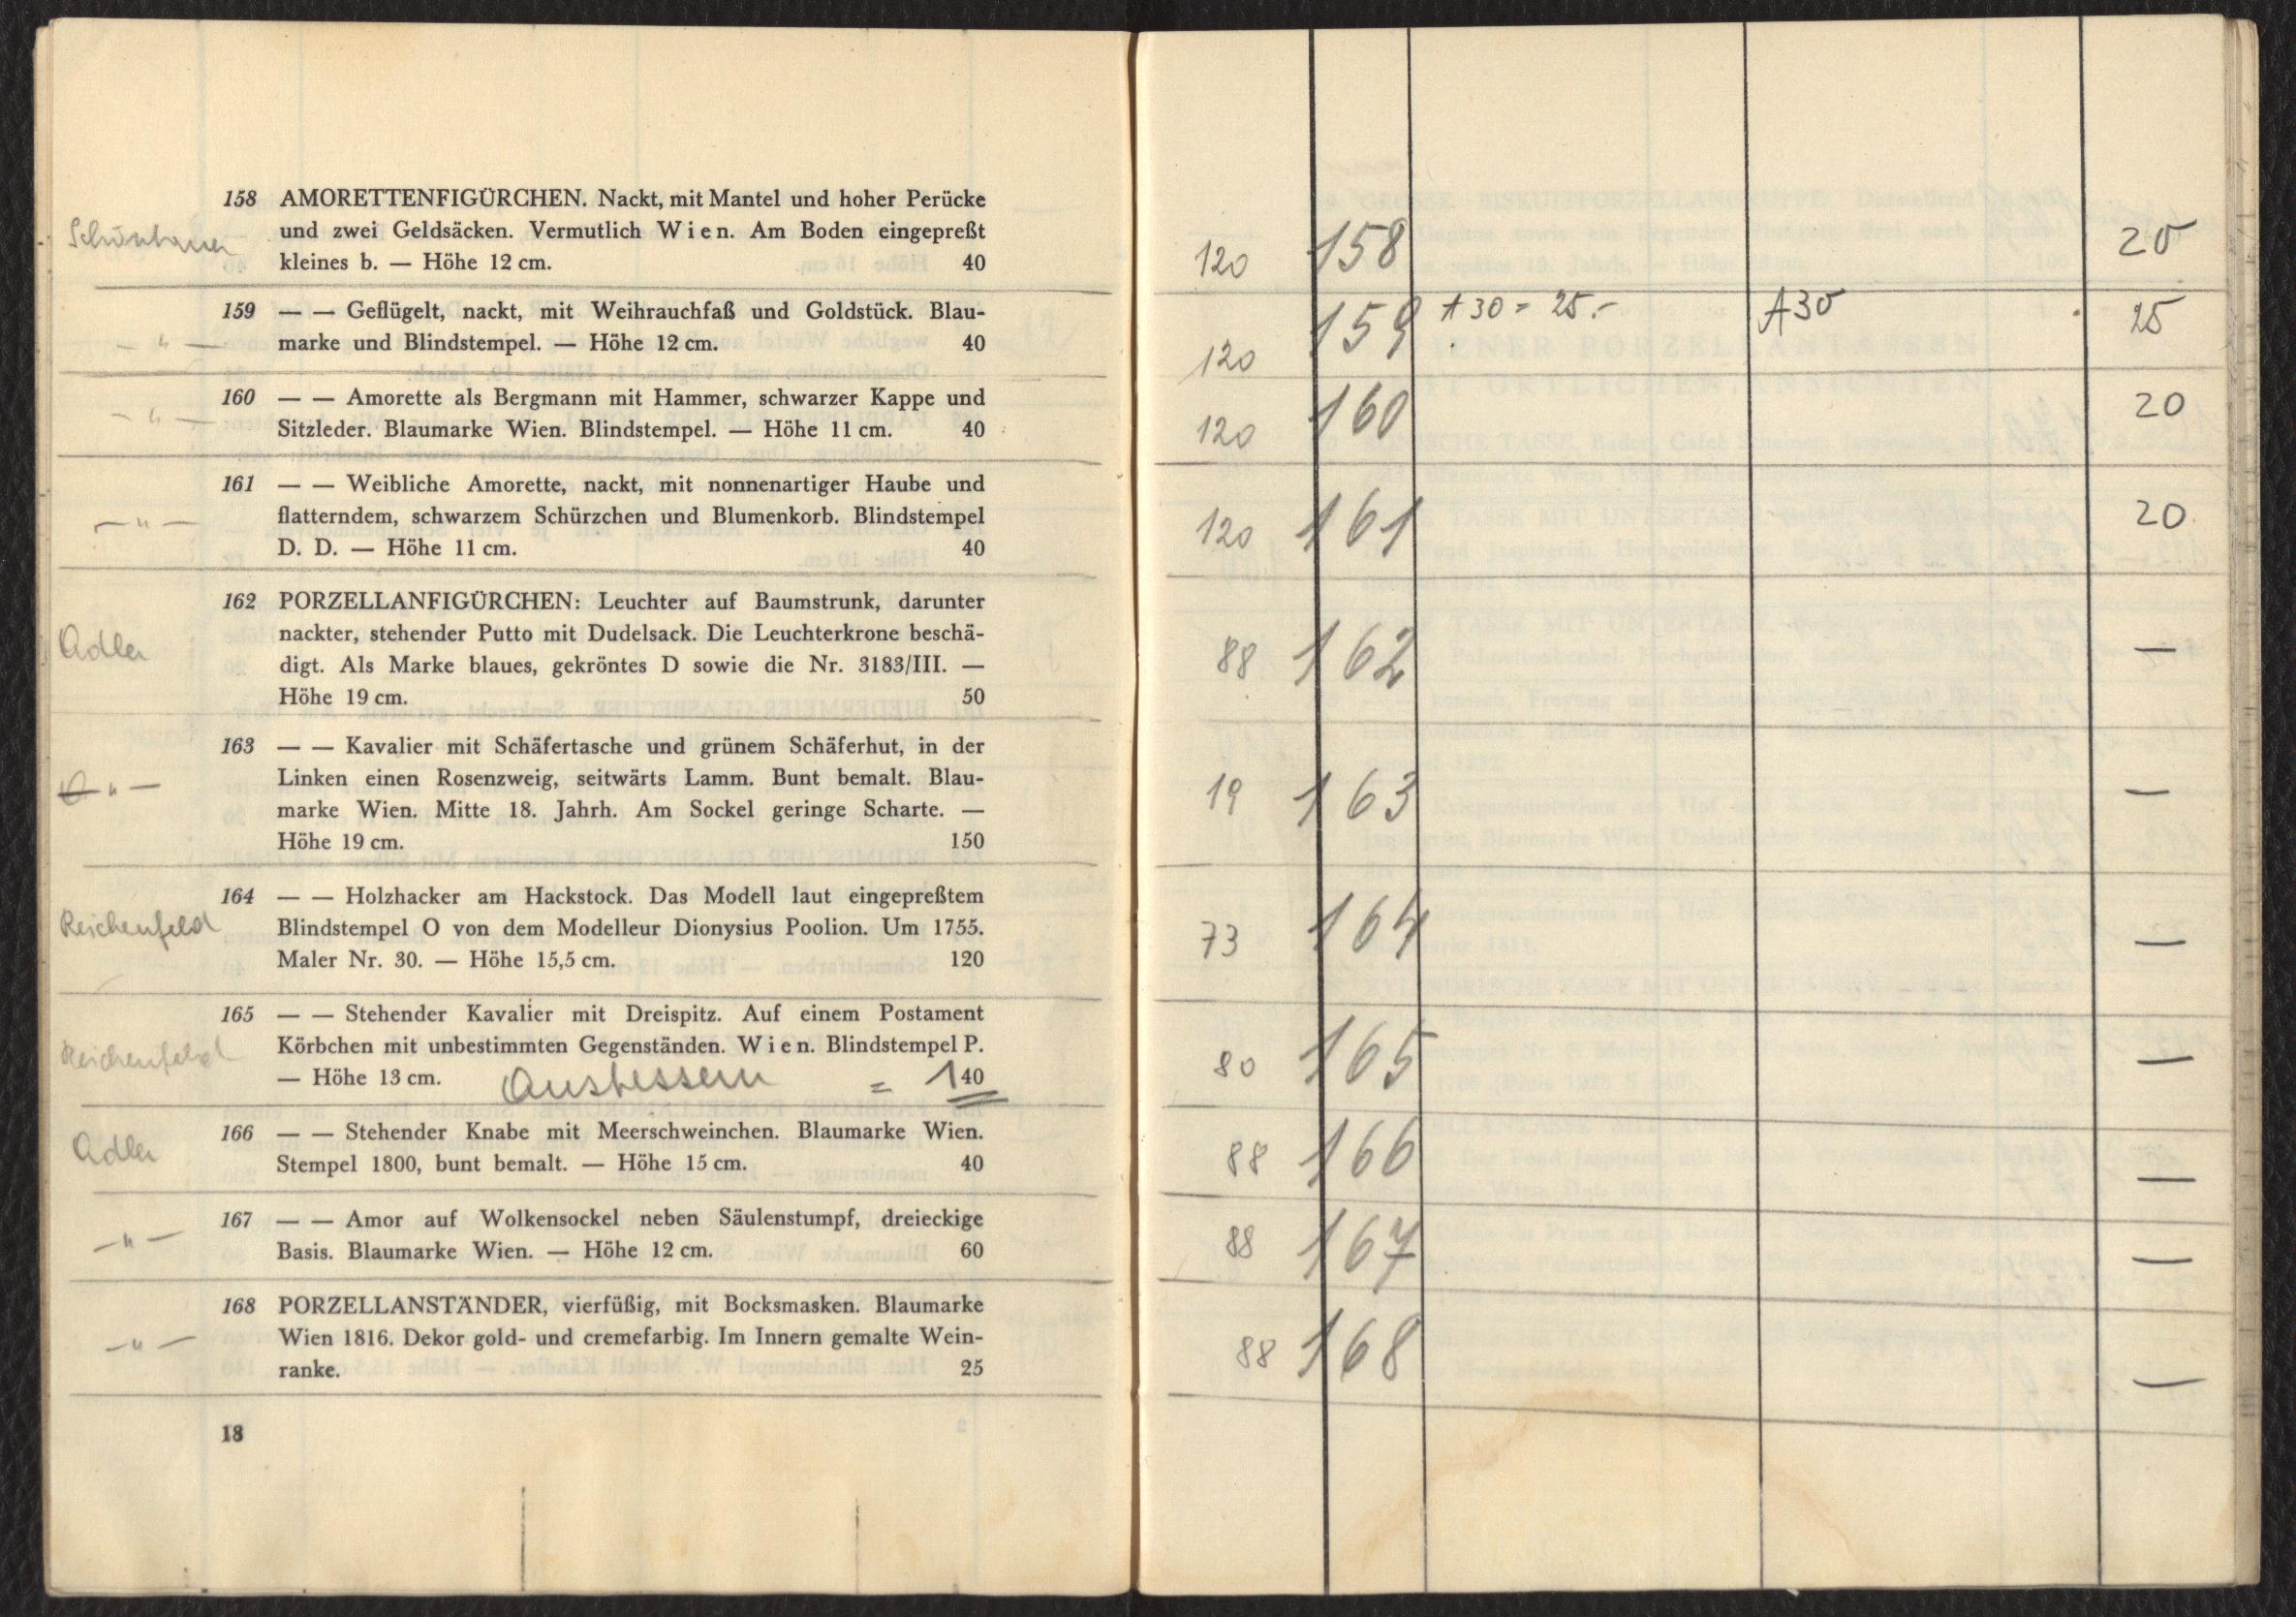 158 AMORETTENFIGÜRCHEN. Nackt, mit Mantel und hoher Perücke
und zwei Geldsäcken. Vermutlich Wien. Am Boden eingepreßt
kleines b. — Höhe 12 cm. 40
159 — — Geflügelt, nackt, mit Weihrauchfaß und Goldstück. Blau-
— " — marke und Blindstempel. — Höhe 12 cm. 40
160 — — Amorette als Bergmann mit Hammer, schwarzer Kappe und
— " — Sitzleder. Blaumarke Wien. Blindstempel. — Höhe 11 cm. 40
161 — — Weibliche Amorette, nackt, mit nonnenartiger Haube und
— " — flatterndem, schwarzem Schürzchen und Blumenkorb. Blindstempel
D. D. — Höhe 11 cm. 40
162 PORZELLANFIGÜRCHEN: Leuchter auf Baumstrunk, darunter
Adler nackter, stehender Putto mit Dudelsack. Die Leuchterkrone beschä-
digt. Als Marke blaues, gekröntes D sowie die Nr. 3183/III. —
Höhe 19 cm. 50
163 — — Kavalier mit Schäfertasche und grünem Schäferhut, in der
— " — Linken einen Rosenzweig, seitwärts Lamm. Bunt bemalt. Blau-
marke Wien. Mitte 18. Jahrh. Am Sockel geringe Scharte. —
Höhe 19 cm. 150
164 — — Holzhacker am Hackstock. Das Modell laut eingepreßtem
Reichenfeld Blindstempel O von dem Modelleur Dionysius Poolion. Um 1755.
Maler Nr. 30. — Höhe 15,5 cm. 120
165 — — Stehender Kavalier mit Dreispitz. Auf einem Postament
Reichenfeld Körbchen mit unbestimmten Gegenständen. Wien. Blindstempel P.
— Höhe 13 cm. Ausbessern = 140
166 — — Stehender Knabe mit Meerschweinchen. Blaumarke Wien.
Adler Stempel 1800, bunt bemalt. — Höhe 15 cm. 40
167 — — Amor auf Wolkensockel neben Säulenstumpf, dreieckige
— " — Basis. Blaumarke Wien. — Höhe 12 cm. 60
168 PORZELLANSTÄNDER, vierfüßig, mit Bocksmasken. Blaumarke
— " — Wien 1816. Dekor gold- und cremefarbig. Im Innern gemalte Wein-
ranke. 25
18
120 158 20
120 159 A 30 = 25.- A 30 25
120 160 20
120 161 20
88 162 —
19 163 —
73 164 —
80 165 —
88 166 —
88 167 —
88 168 —